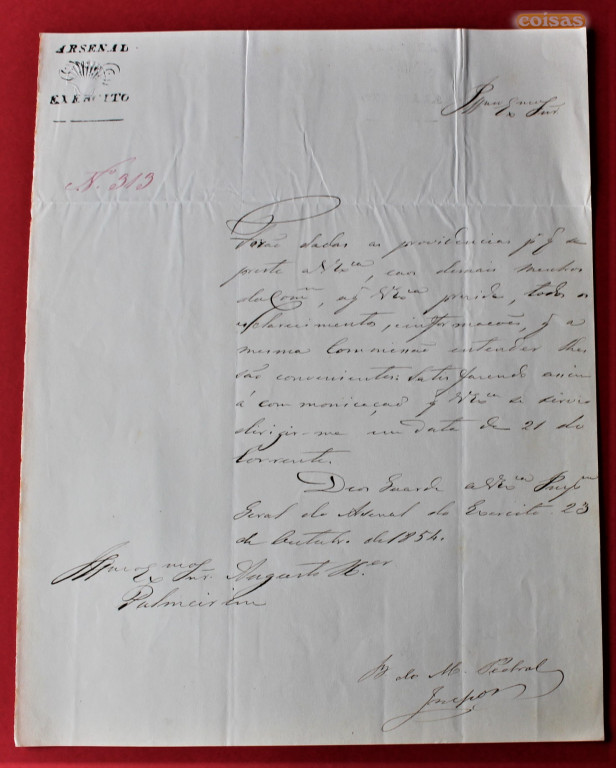 coisas
ARSENAL
EXERCITO
Nº 313
Exmo Snr
dadas as providencias pª q se
preste a V Exca, e aos demais membros
da Comm, a q V Exca preside, todos os
esclarecimentos, e informações, q a
mesma Commissão entender lhes
são convenientes. Satisfazendo assim
á communicação q V Exca se serviu
dirigir-me em data de 21 do
Corrente.
Deos Guarde a V Exca
Geral do Arsenal do Exercito 23
de Outubr. de 1854.
Exmo Snr. Augusto Xer
Palmeirim
B do M. Pedral
Inspor